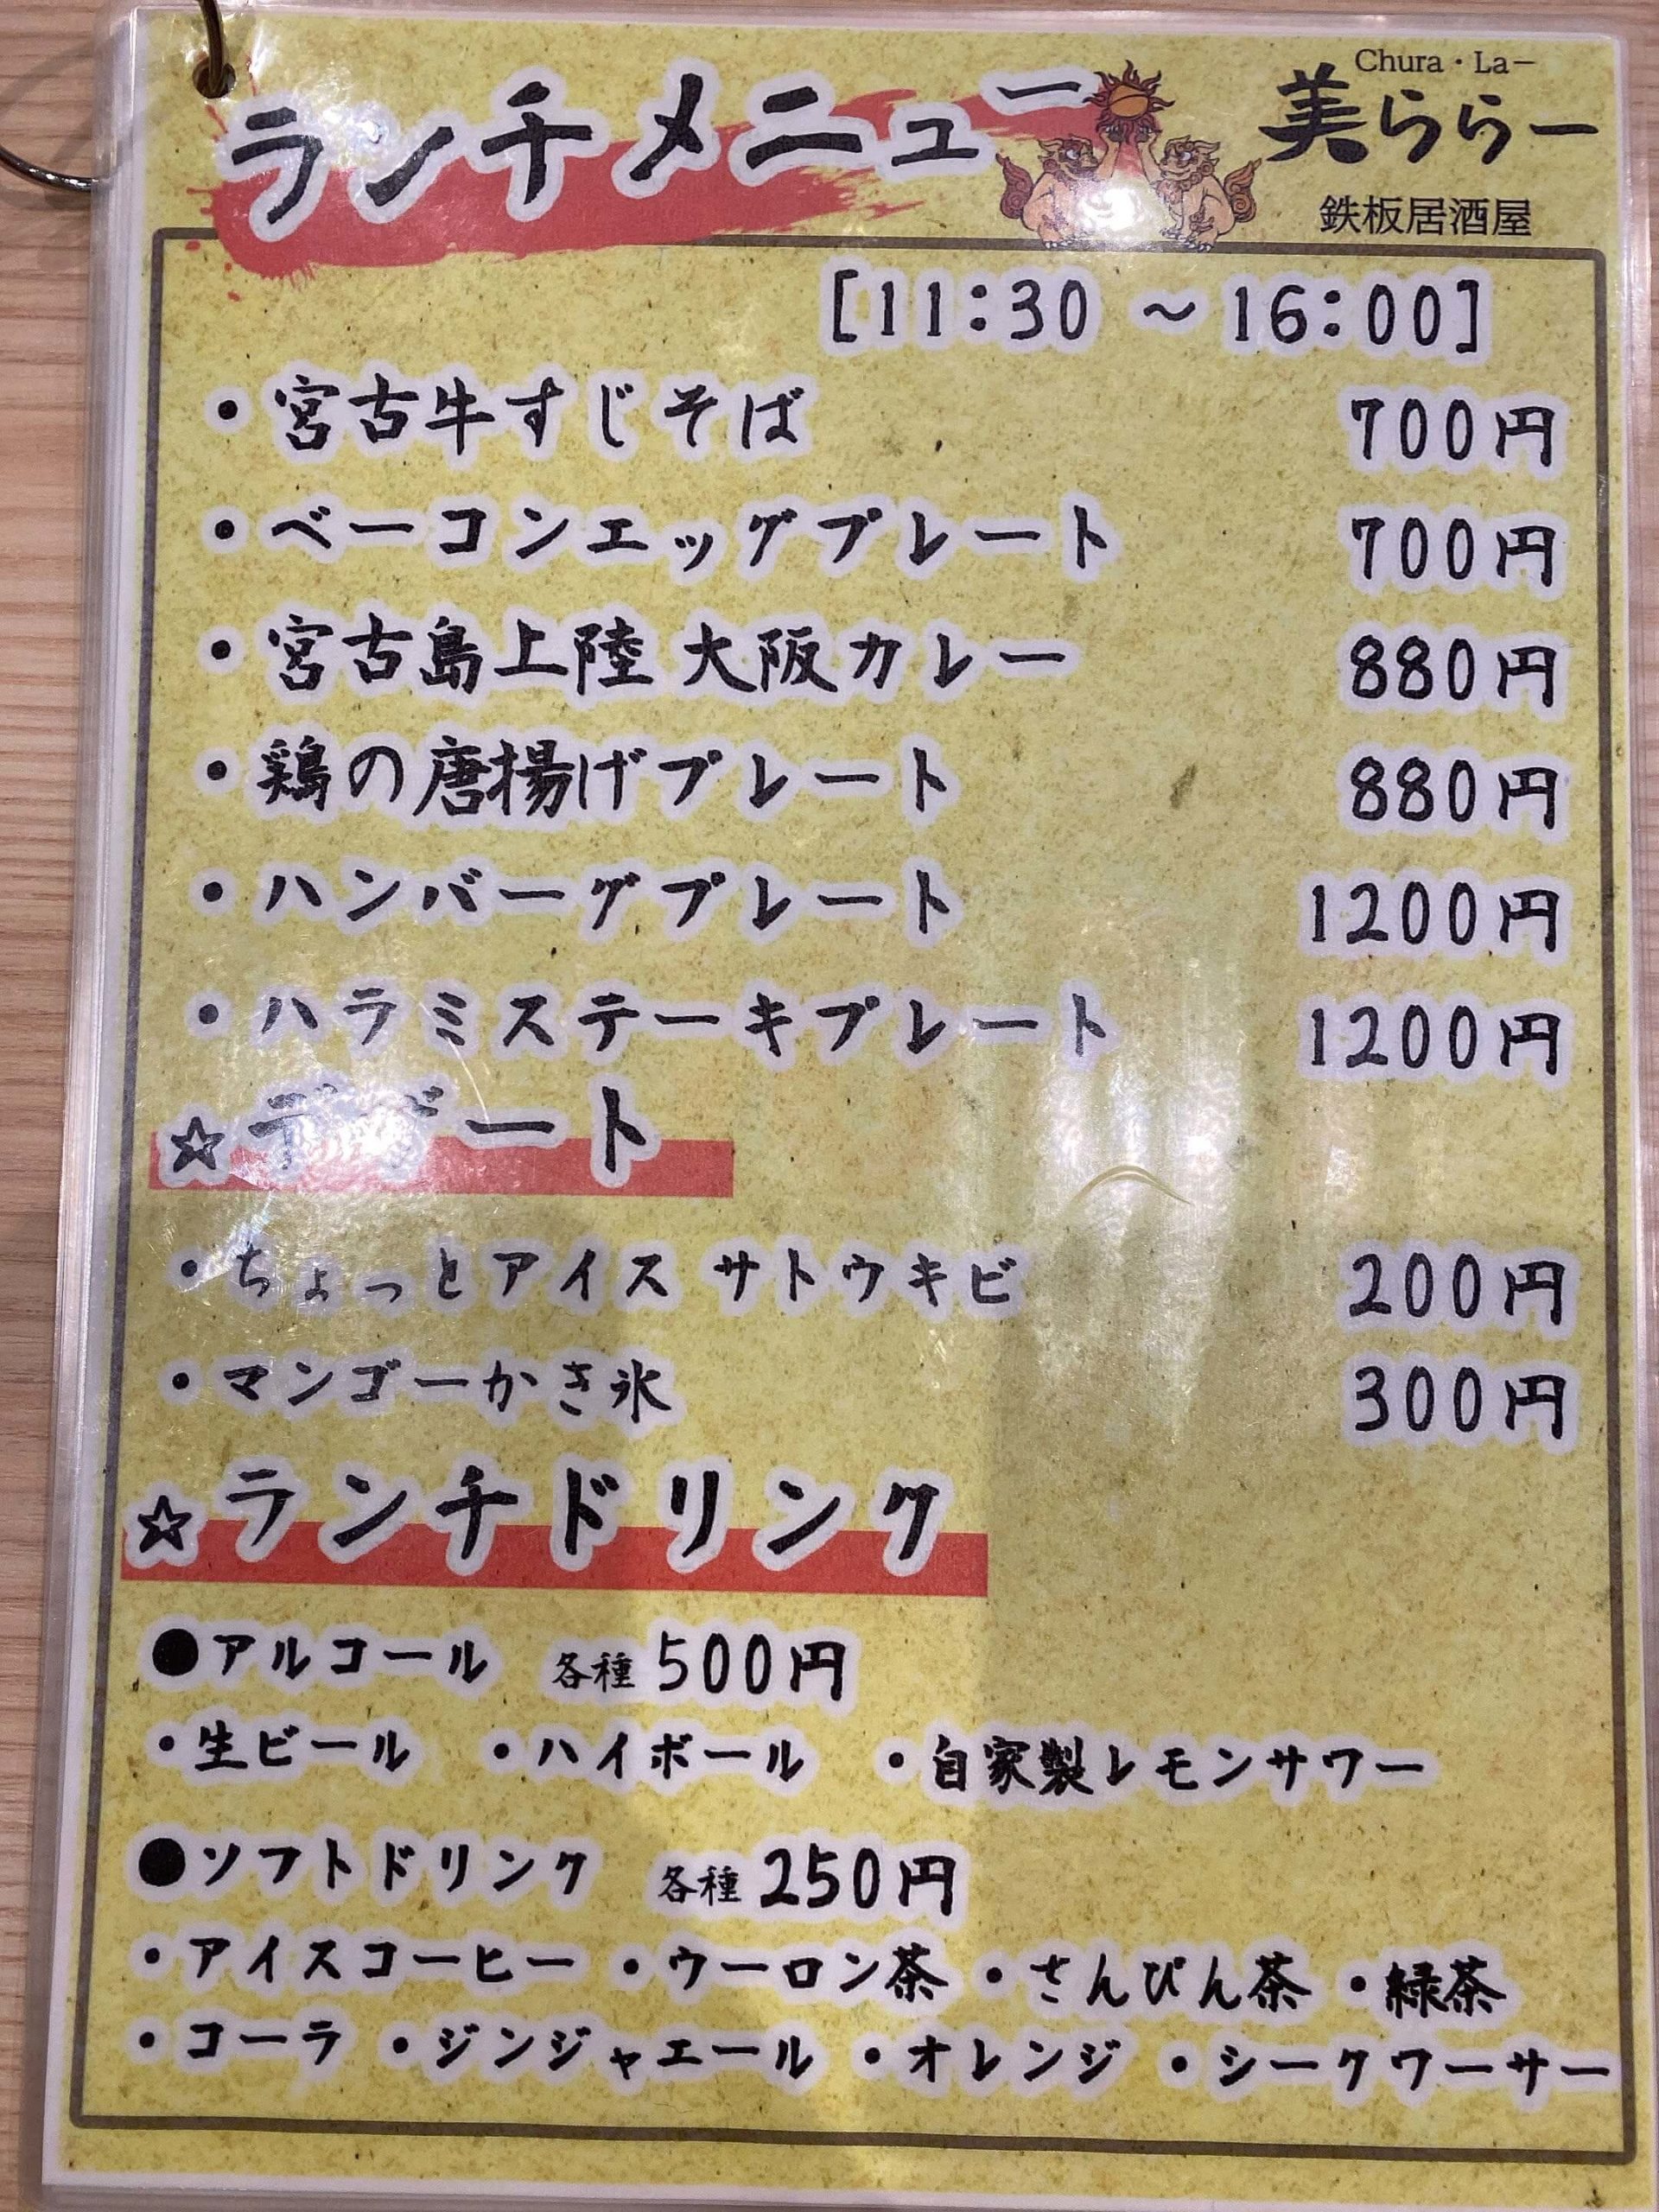 ランチメニュー
Chura・Laー
美ららー
鉄板居酒屋
[11:30 ～16:00]
・宮古牛すじそば 700円
・ベーコンエッグプレート 700円
・宮古島上陸 大阪カレー 880円
・鶏の唐揚げプレート 880円
・ハンバーグプレート 1200円
・ハラミステーキプレート 1200円
☆デザート
・ちょっとアイス サトウキビ 200円
・マンゴーかき氷 300円
☆ランチドリンク
●アルコール 各種500円
・生ビール ・ハイボール ・自家製レモンサワー
●ソフトドリンク 各種250円
・アイスコーヒー ・ウーロン茶 ・さんぴん茶 ・緑茶
・コーラ ・ジンジャエール ・オレンジ ・シークワーサー